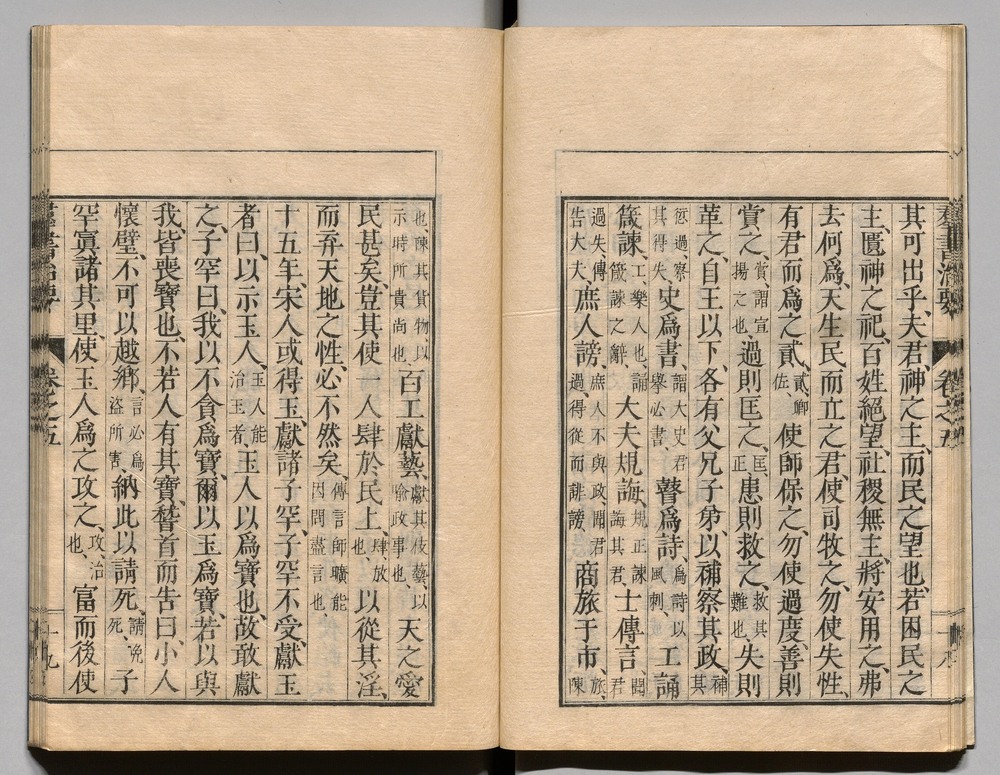 其可出乎、夫君、神之主、而民之望也、若困民之
主、匱神之祀、百姓絕望、社稷無主、將安用之、弗
去何爲、天生民而立之君、使司牧之、勿使失性、
有君而爲之貳、貳、卿佐、使師保之、勿使過度、善則
賞之、賞、謂宣揚之也過則匡之、匡、正、患則救之、救其難也失則
革之、自王以下、各有父兄子弟、以補察其政、補其
愆過察其得失史爲書、謂大史君舉必書、瞽爲詩、爲詩以風刺工誦
箴諫、工、樂人也、誦箴諫之辭、大夫規誨、規正諫誨其君、士傳言、聞君
過失傳告大夫、庶人謗、庶人不與政聞君過得從而誹謗、商旅于市、旅、陳
也、陳其貨物、以示時所貴尚也、百工獻藝、獻其伎藝、以喻政事也、天之愛
民甚矣、豈其使一人肆於民上、肆、放也、以從其淫、
而弃天地之性、必不然矣、傳言師曠能因問盡言也
十五年、宋人或得玉、獻諸子罕、子罕不受、獻玉
者曰、以示玉人、玉人能治玉者、玉人以爲寶也、故敢獻
之、子罕曰、我以不貪爲寶、爾以玉爲寶、若以與
我、皆喪寶也、不若人有其寶、稽首而告曰、小人
懷璧、不可以越鄉、言必爲盜所害、納此以請死、請免死、子
罕寘諸其里、使玉人爲之攻之、攻、治也、富而後使
羣書治要
卷之五
十九